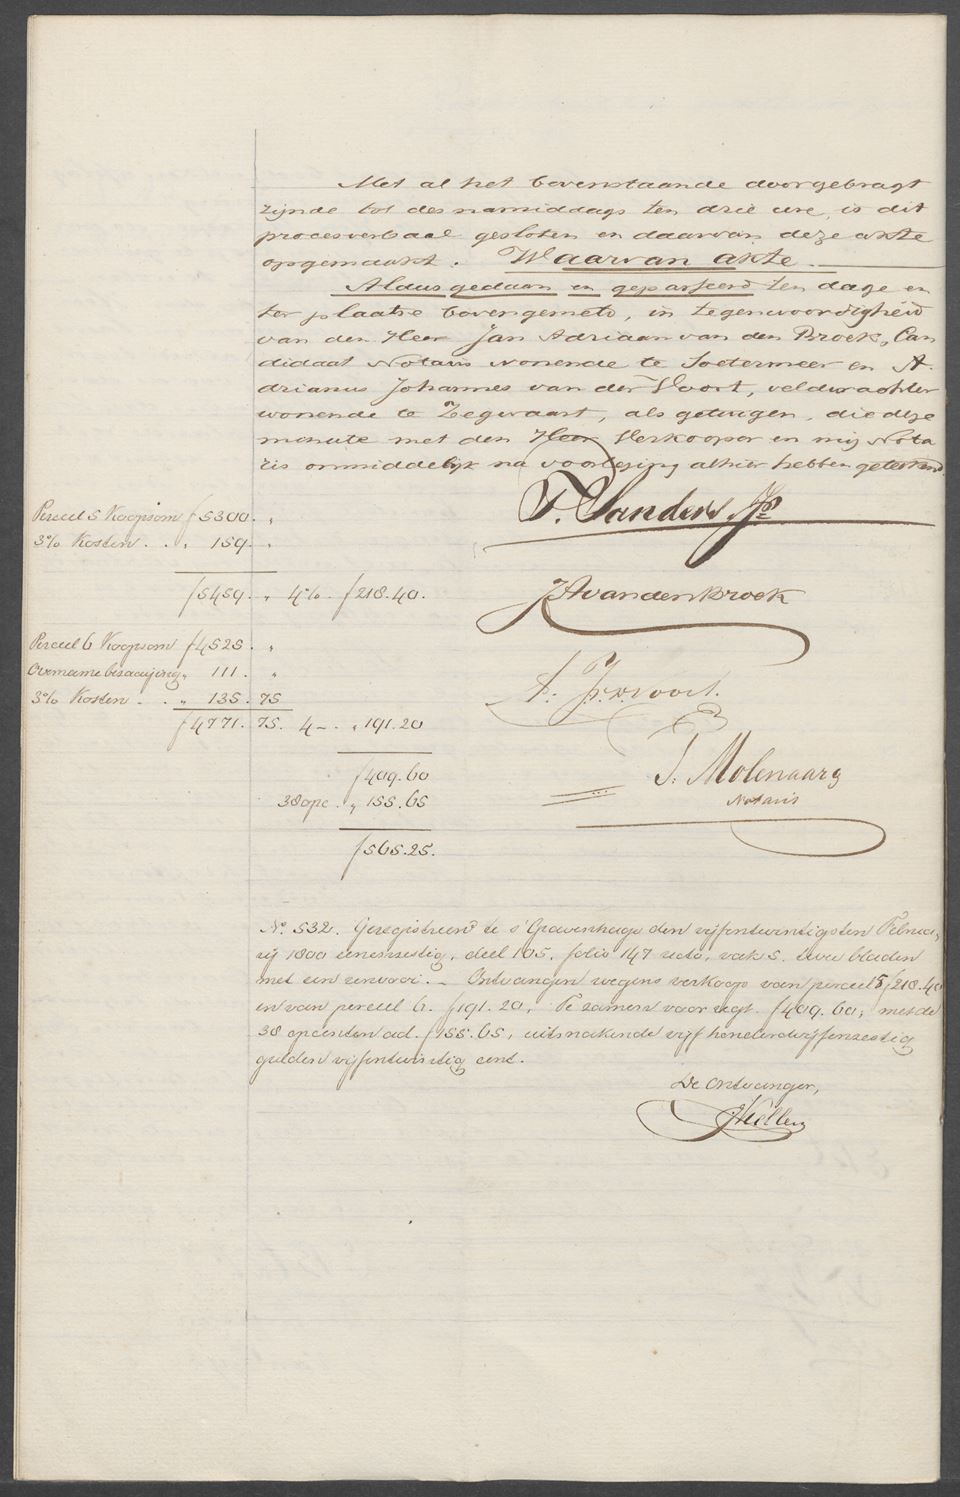 Met al het bovenstaande doorgebragt
zijnde tot des namiddags ten drie ure, is dit
procesverbaal gesloten en daarvan deze akte
opgemaakt. Waarvan akte.
Aldus gedaan en gepasseerd ten dage en
ter plaatse bovengemeld, in tegenwoordigheid
van den Heer Jan Adriaan van den Broek, Can
didaat Notaris wonende te Soetermeer en A-
drianus Johannes van der Voort, veldwachter
wonende te Zegwaart, als getuigen, die deze
minute met den Heer Verkooper en mij Nota
ris onmiddelijk na voorlezing alhier hebben geteekend.
T. Sanders
JAvandenBroek
J. Molenaar
Notaris
Perceel 5 Koopsom f 5300. „
3% Kosten . . „ 159. „
f 5459. „ 4%. f 218.40.
Perceel 6 Koopsom f 4525. „
Overname bezaaijing „ 111. „
3% Kosten . . „ 135.75
f 4771.75. 4 – . „ 191.20
f 409.60
38 opc. „ 155.65
f 565.25.
No. 532. Geregistreerd te s'Gravenhage den vijfentwintigsten Februa-
rij 1800 eenenzestig, deel 105, folio 147 recto, vak 5. twee bladen
met een renvooi. – Ontvangen wegens verkoop van perceel 5 f 218.40
en van perceel 6. f 191.20, Te zamen voor regt f 409.60; met de
38 opcenten ad. f 155.65, uitmakende vijf honderdvijfenzestig
gulden vijfentwintig cent.
De Ontvanger,